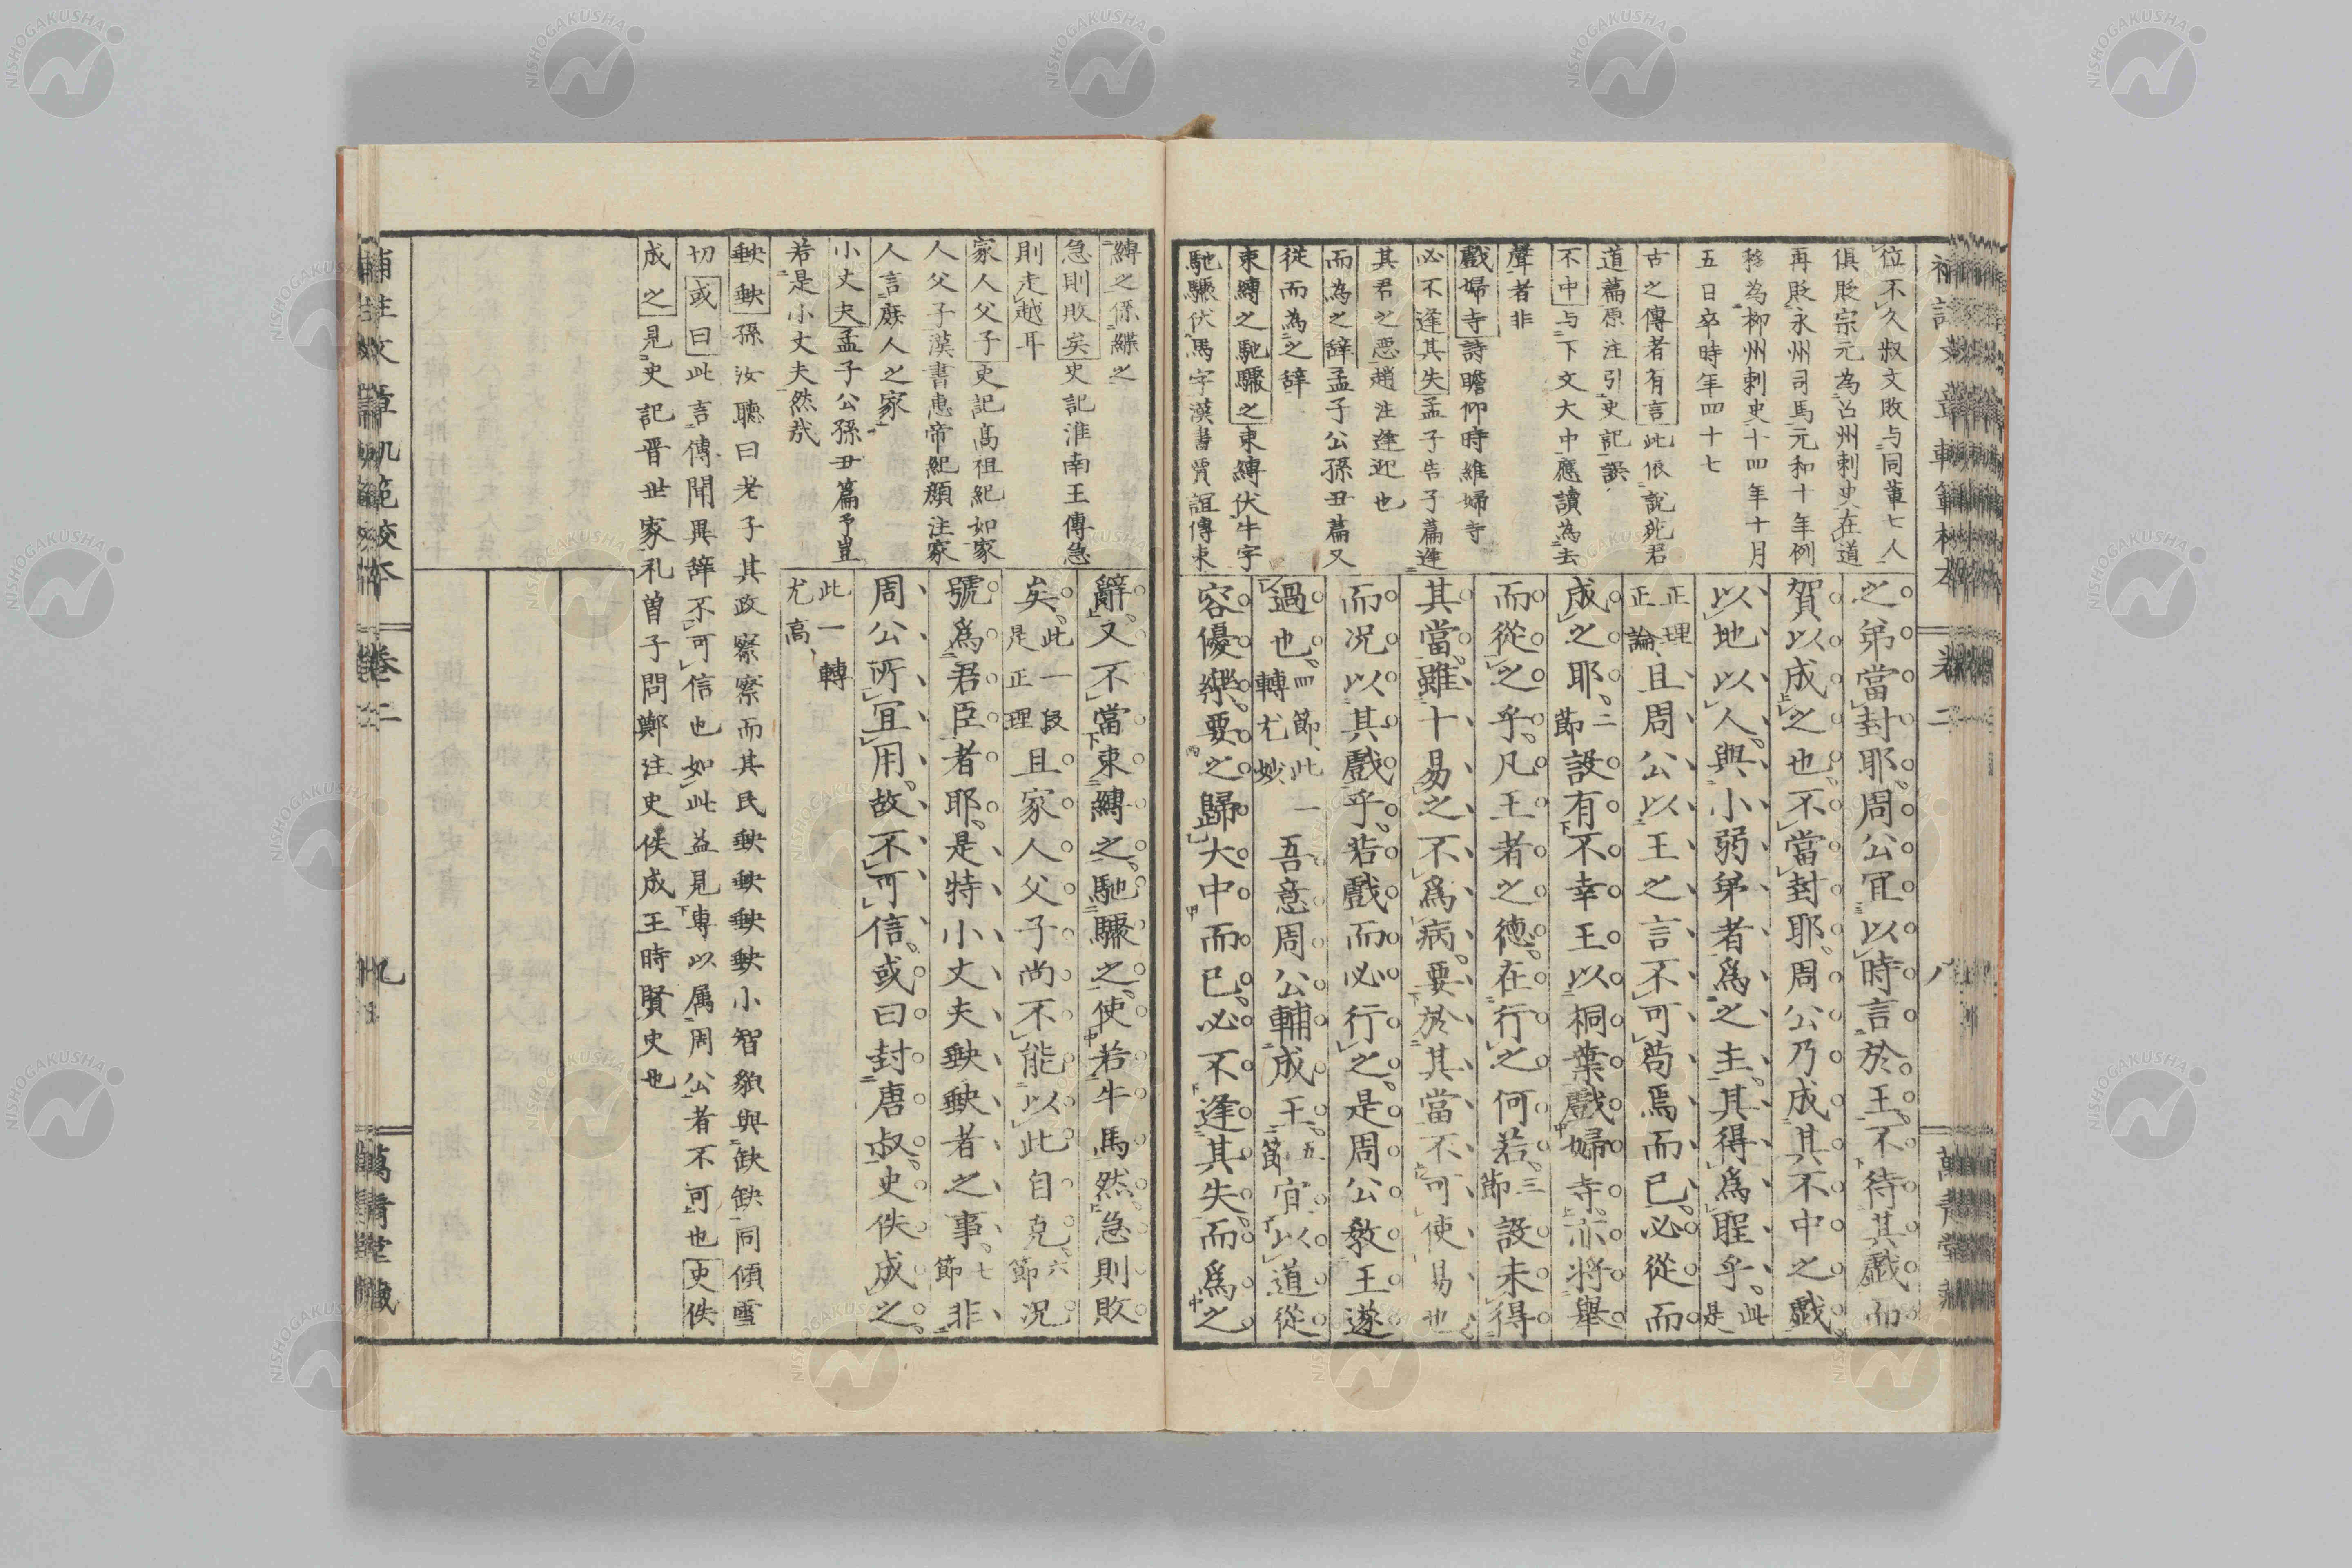 位不久叔文敗与同軰七人
俱貶宗元為呂州刺史在道
再貶永州司馬元和十年例
移為柳州刺史十四年十月
五日卒時年四十七
古之傳者有言此依說苑君
道篇原注引史記誤
不中与下文大中應讀為去
聲者非
戲婦寺詩瞻仰時維婦寺
必不逢其失孟子告子篇逢
其君之悪趙注逢迎也
而為之辞孟子公孫丑篇又
從而為之辞
束縛之馳驟之束縛伏牛字
馳驟伏馬字漢書賈誼傳束
之弟當封耶周公冝以時言於王不待其戲而
賀以成之也不當封耶周公乃成其不中之戲
以地以人與小弱弟者為之主其得為聖乎此是
正理正論且周公以王之言不可苟焉而已必從而
成之耶二節設有不幸王以桐葉戲婦寺亦將舉
而從之乎凡王者之德在行之何若三節設未得
其當雖十易之不為病要於其當不可使易也
而况以其戲乎若戲而必行之是周公教王遂
過也四節此一轉尤妙吾意周公輔成王五節宜以道從
容優樂要之歸大中而已必不逢其失而爲之
縛之係緤之
急則敗矣史記淮南王傳急
則走越耳
家人父子史記高祖紀如家
人父子漢書惠帝紀顏注家
人言庶人之家
小丈夫孟子公孫丑篇予豈
若是小丈夫然㢤
𡙇𡙇孫汝聽曰老子其政察察而其民𡙇𡙇𡙇𡙇小智貌與缺缺同傾雪
切或曰此言傳聞異辞不可信也如此益見專以属周公者不可也史佚
成之見史記晋世家礼曽子問鄭注史佚成王時賢史也
辭又不當束縛之馳驟之使若牛馬然急則敗
矣此一段是正理且家人父子尚不能以此自克六節况
號爲君臣者耶是特小丈夫𡙇𡙇者之事七節非
周公所冝用故不可信或曰封唐叔史佚成之
此一轉尤高
補註文章軌範校本
卷二
九
萬青堂藏